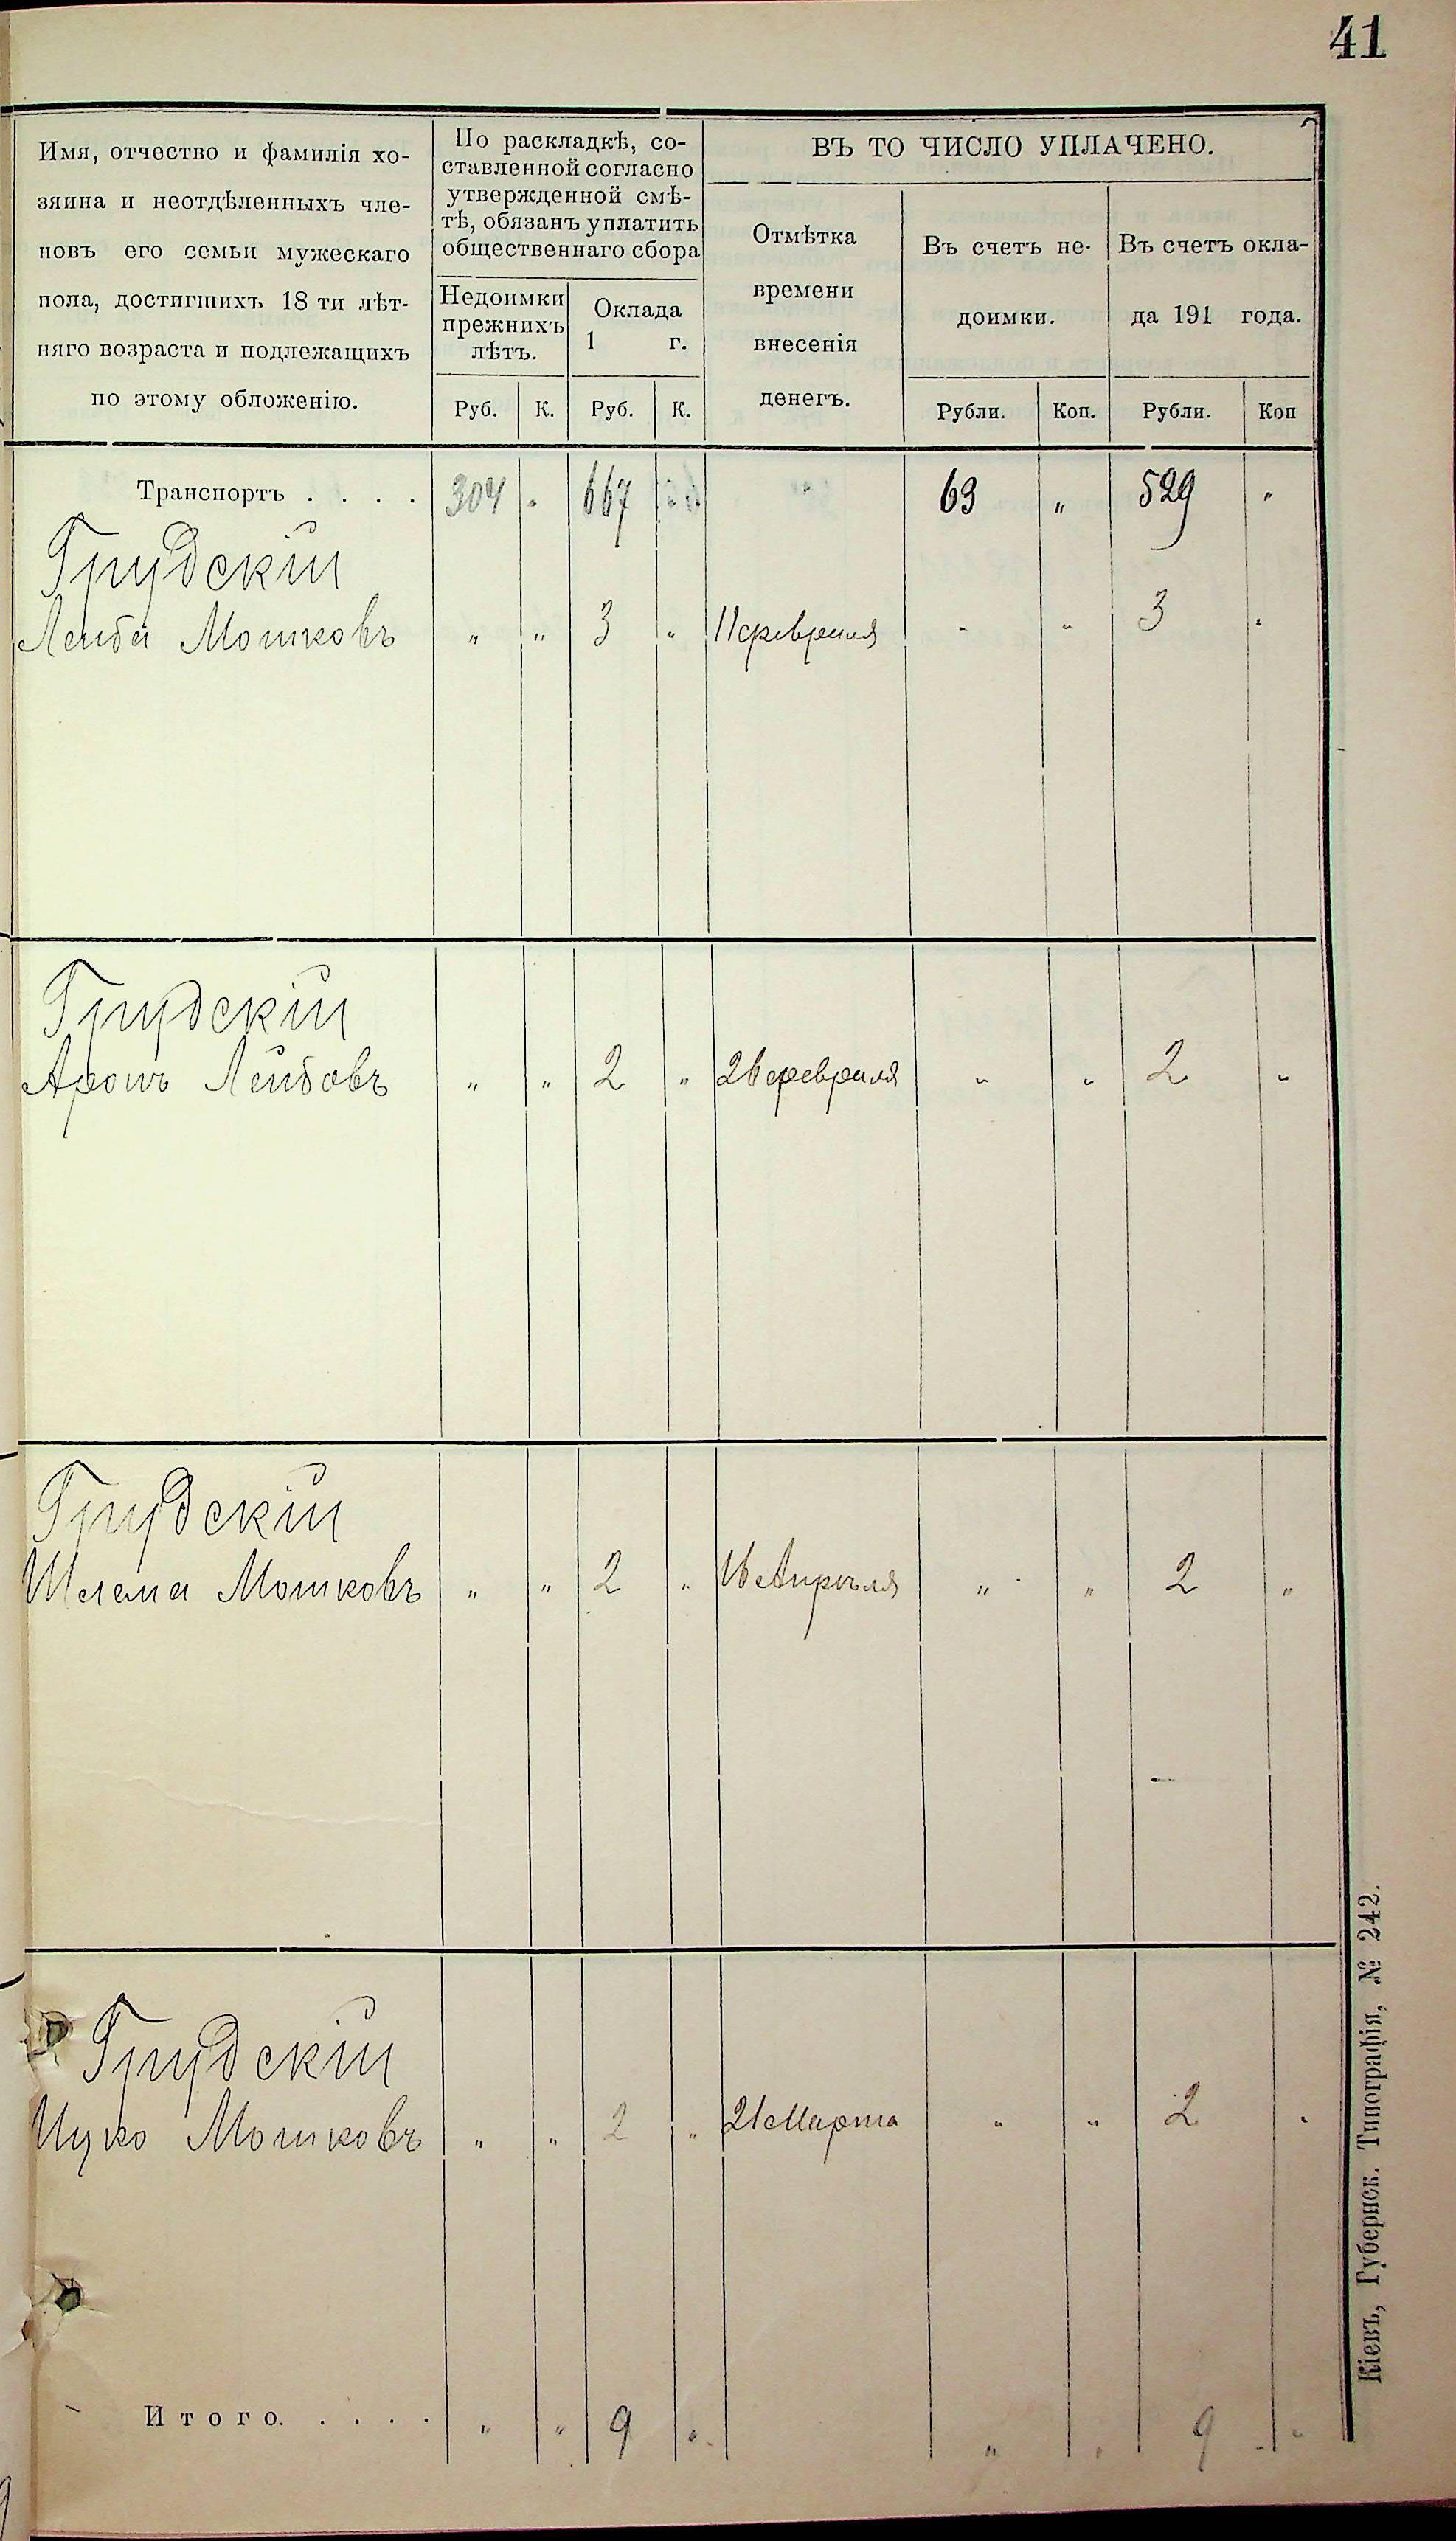 41
Имя, отчество и фамилія хо-
зяина и неотдѣленныхъ чле-
новъ его семьи мужескаго
пола, достигшихъ 18 ти лѣт-
няго возраста и подлежащихъ
по этому обложенію.
По раскладкѣ, со-
ставленной согласно
утвержденной смѣ-
тѣ, обязанъ уплатить
общественнаго сбора
Недоимки
прежнихъ
лѣтъ.
Оклада
1 г.
Руб. К. Руб. К.
ВЪ ТО ЧИСЛО УПЛАЧЕНО.
Отмѣтка
времени
внесенія
денегъ.
Въ счетъ не-
доимки.
Въ счетъ окла-
да 191 года.
Рубли. Коп. Рубли. Коп
Транспортъ . . . . 304 „ 667 63 „ 529 „
Грудскій
Лейба Мошковъ „ „ 3 „ 11 февраля „ „ 3 „
Грудскій
Аронъ Лейбовъ „ „ 2 „ 26 февраля „ „ 2 „
Грудскій
Шлема Мошковъ „ „ 2 „ 16 Апрѣля „ „ 2 „
Грудскій
Ицко Мошковъ „ „ 2 „ 21 Марта „ „ 2 „
Итого. . . . . „ „ 9 „ „ „ 9 „
Кіевъ, Губернск. Типографія, № 242.